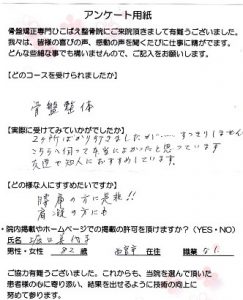 アンケート用紙
骨盤矯正専門ひこばえ整骨院にご来院頂きまして有難うございました。
我々は、皆様の喜びの声、感動の声を聞くたびに仕事に精がでます。
どんな些細な事でも構いませんので、ご記入をお願いします。
【どのコースを受けられましたか】
骨盤整体
【実際に受けてみていかがでしたか】
2ヶ所ばかり行きましたが、……すっきりしません
こちらへ伺って本当によかったと思っています
友達や知人におすすめしています。
【どの様な人にすすめたいですか】
腰痛の方に是非!!
肩凝の方にも
・院内掲載やホームページでの掲載の許可を頂けますか?(YES・NO)
氏名
男性・女性 82歳 在住 職業 なし
ご協力有難うございました。これからも、当院を選んで頂いた
患者様の心に寄り添い、結果を出せるように技術の向上に
努めて参ります。